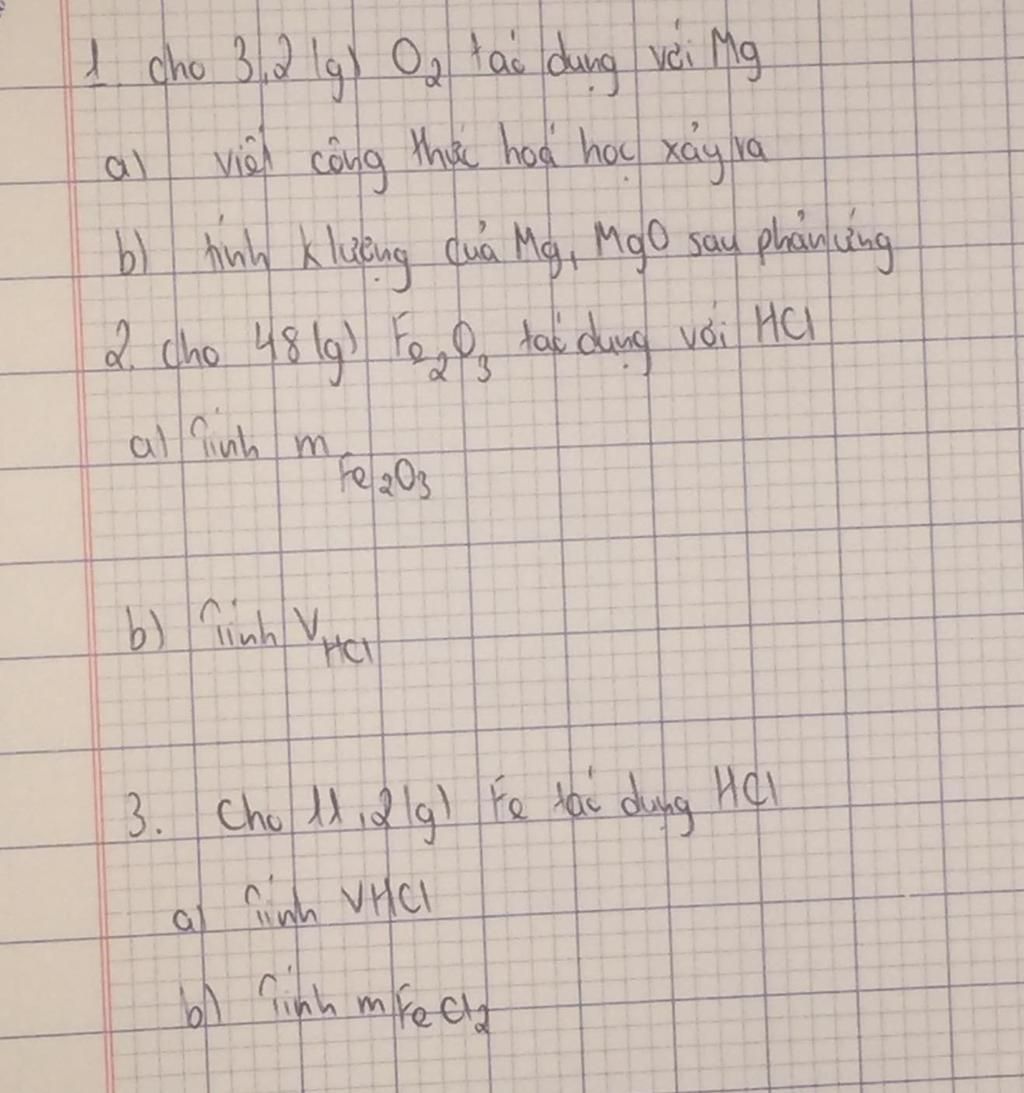 1. cho 3,2 (g) O2 tác dụng với Mg
a) viết công thức hoá học xảy ra
b) tính klượng của Mg, MgO sau phản ứng
2. cho 48 (g) Fe2O3 tác dụng với HCl
a) Tính m Fe2O3
b) Tính VHCl
3. Cho 11,2 (g) Fe tác dụng HCl
a) Tính VHCl
b) Tính mFeCl2